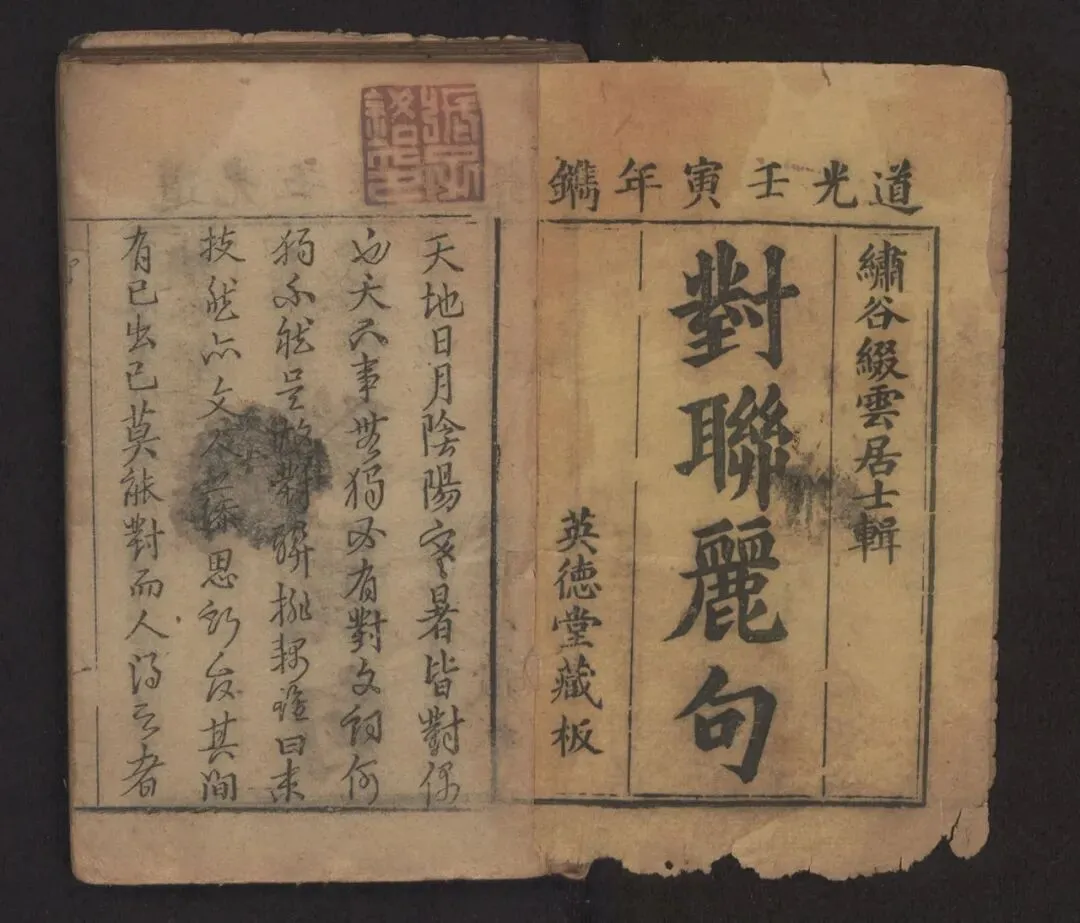 道光壬寅年鐫
繡谷綴雲居士輯
對聯麗句
英德堂藏板
天地日月陰陽寒暑皆對偶
也天下事無獨必有對文詞何
獨不然是故對聯排耦雖曰末
技然亦文人之深思所反其間
有已出已莫能對而人得之者